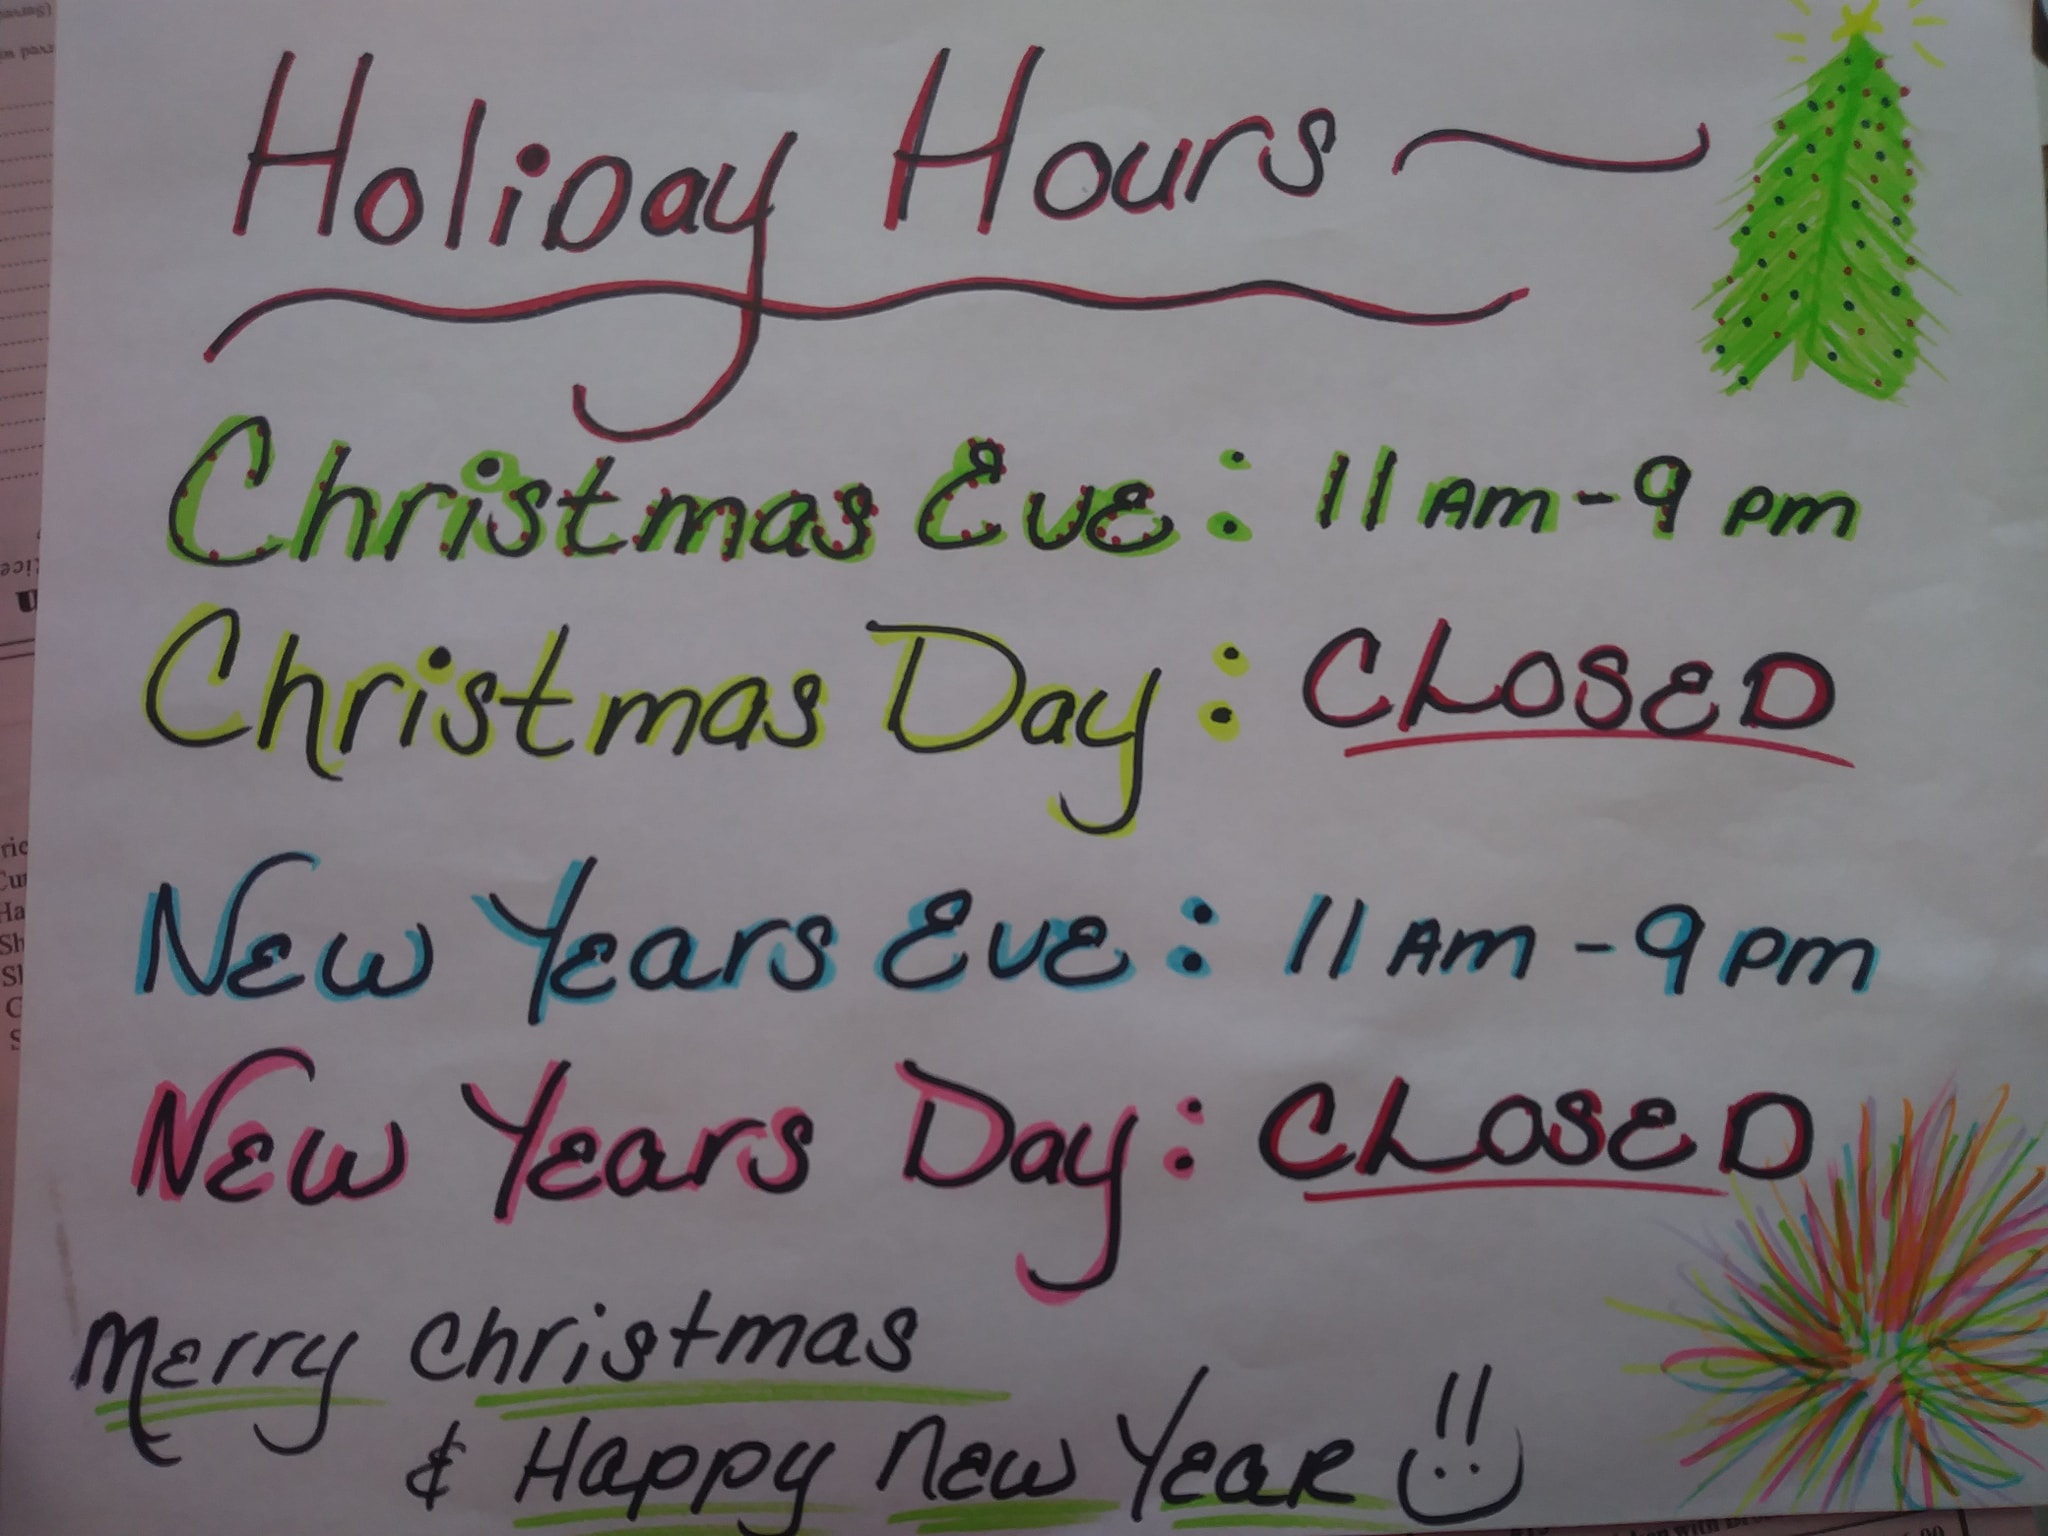 Holiday Hours
Christmas Eve: 11 AM - 9 PM
Christmas Day: CLOSED
New Years Eve: 11 AM - 9 PM
New Years Day: CLOSED
Merry Christmas
& Happy New Year !!